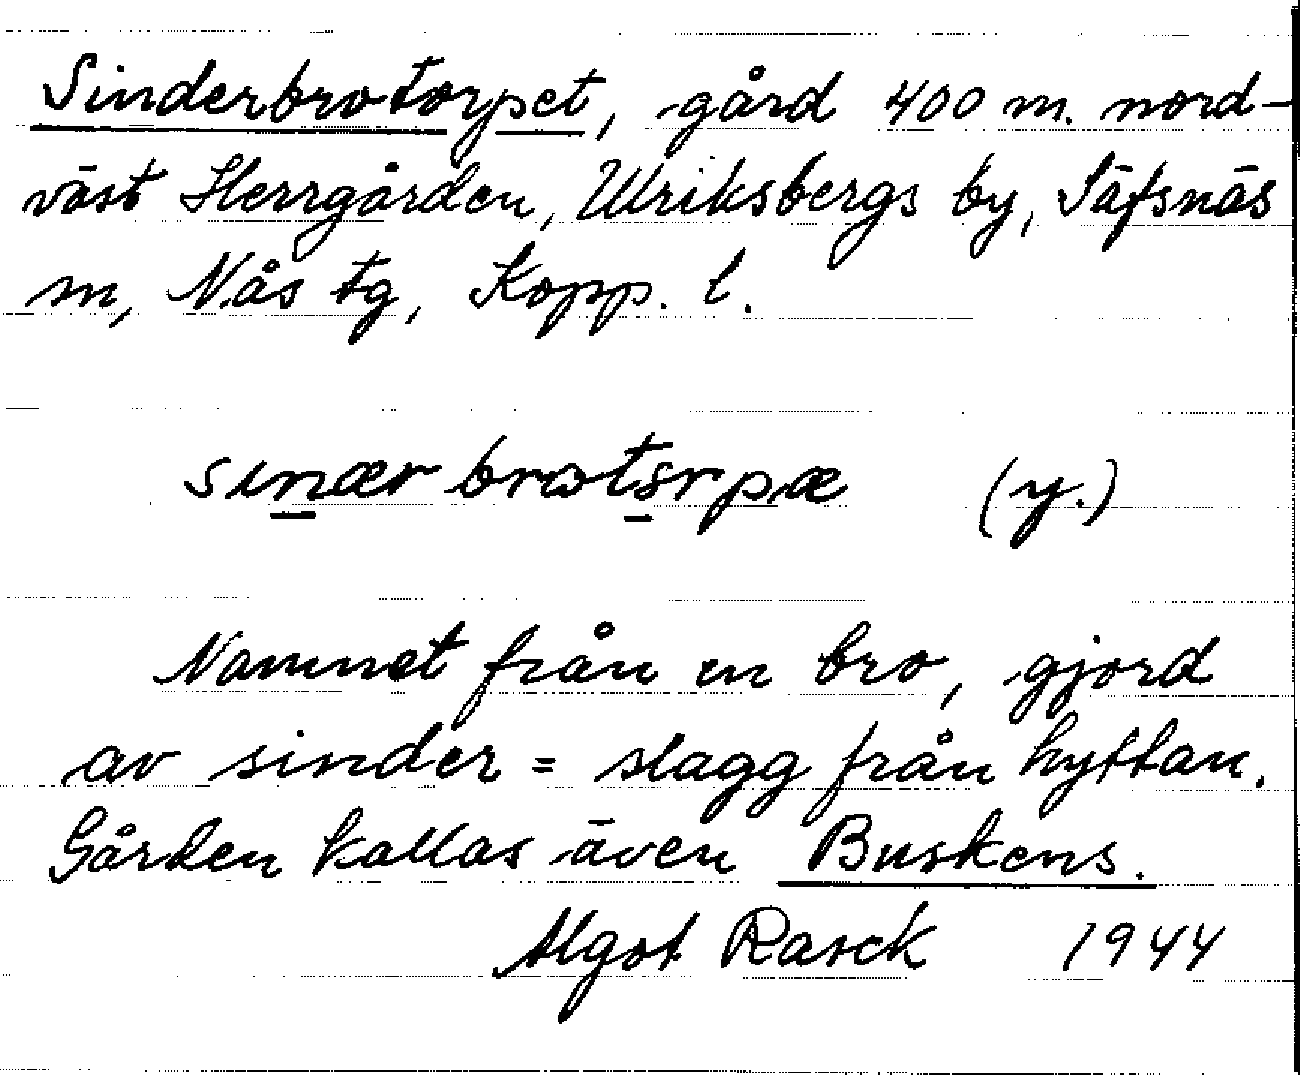 Sinderbrotorpet, gård 400 m. nord-
väst Herrgården, Ulriksbergs by, Säfsnäs
m, Nås tg, Kopp. l.
(y.)
Namnet från en bro, gjord
av sinder = slagg från hyttan.
Gården kallas även Buskens.
Algot Rasck 1944